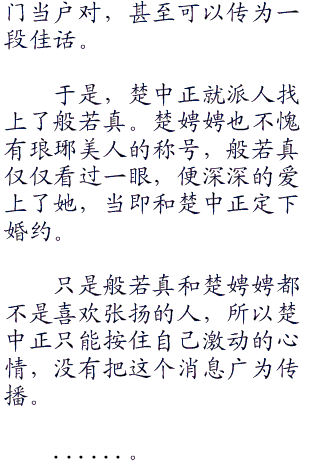 门当户对，甚至可以传为一
段佳话。
于是，楚中正就派人找
上了般若真。楚娉娉也不愧
有琅琊美人的称号，般若真
仅仅看过一眼，便深深的爱
上了她，当即和楚中正定下
婚约。
只是般若真和楚娉娉都
不是喜欢张扬的人，所以楚
中正只能按住自己激动的心
情，没有把这个消息广为传
播。
......。